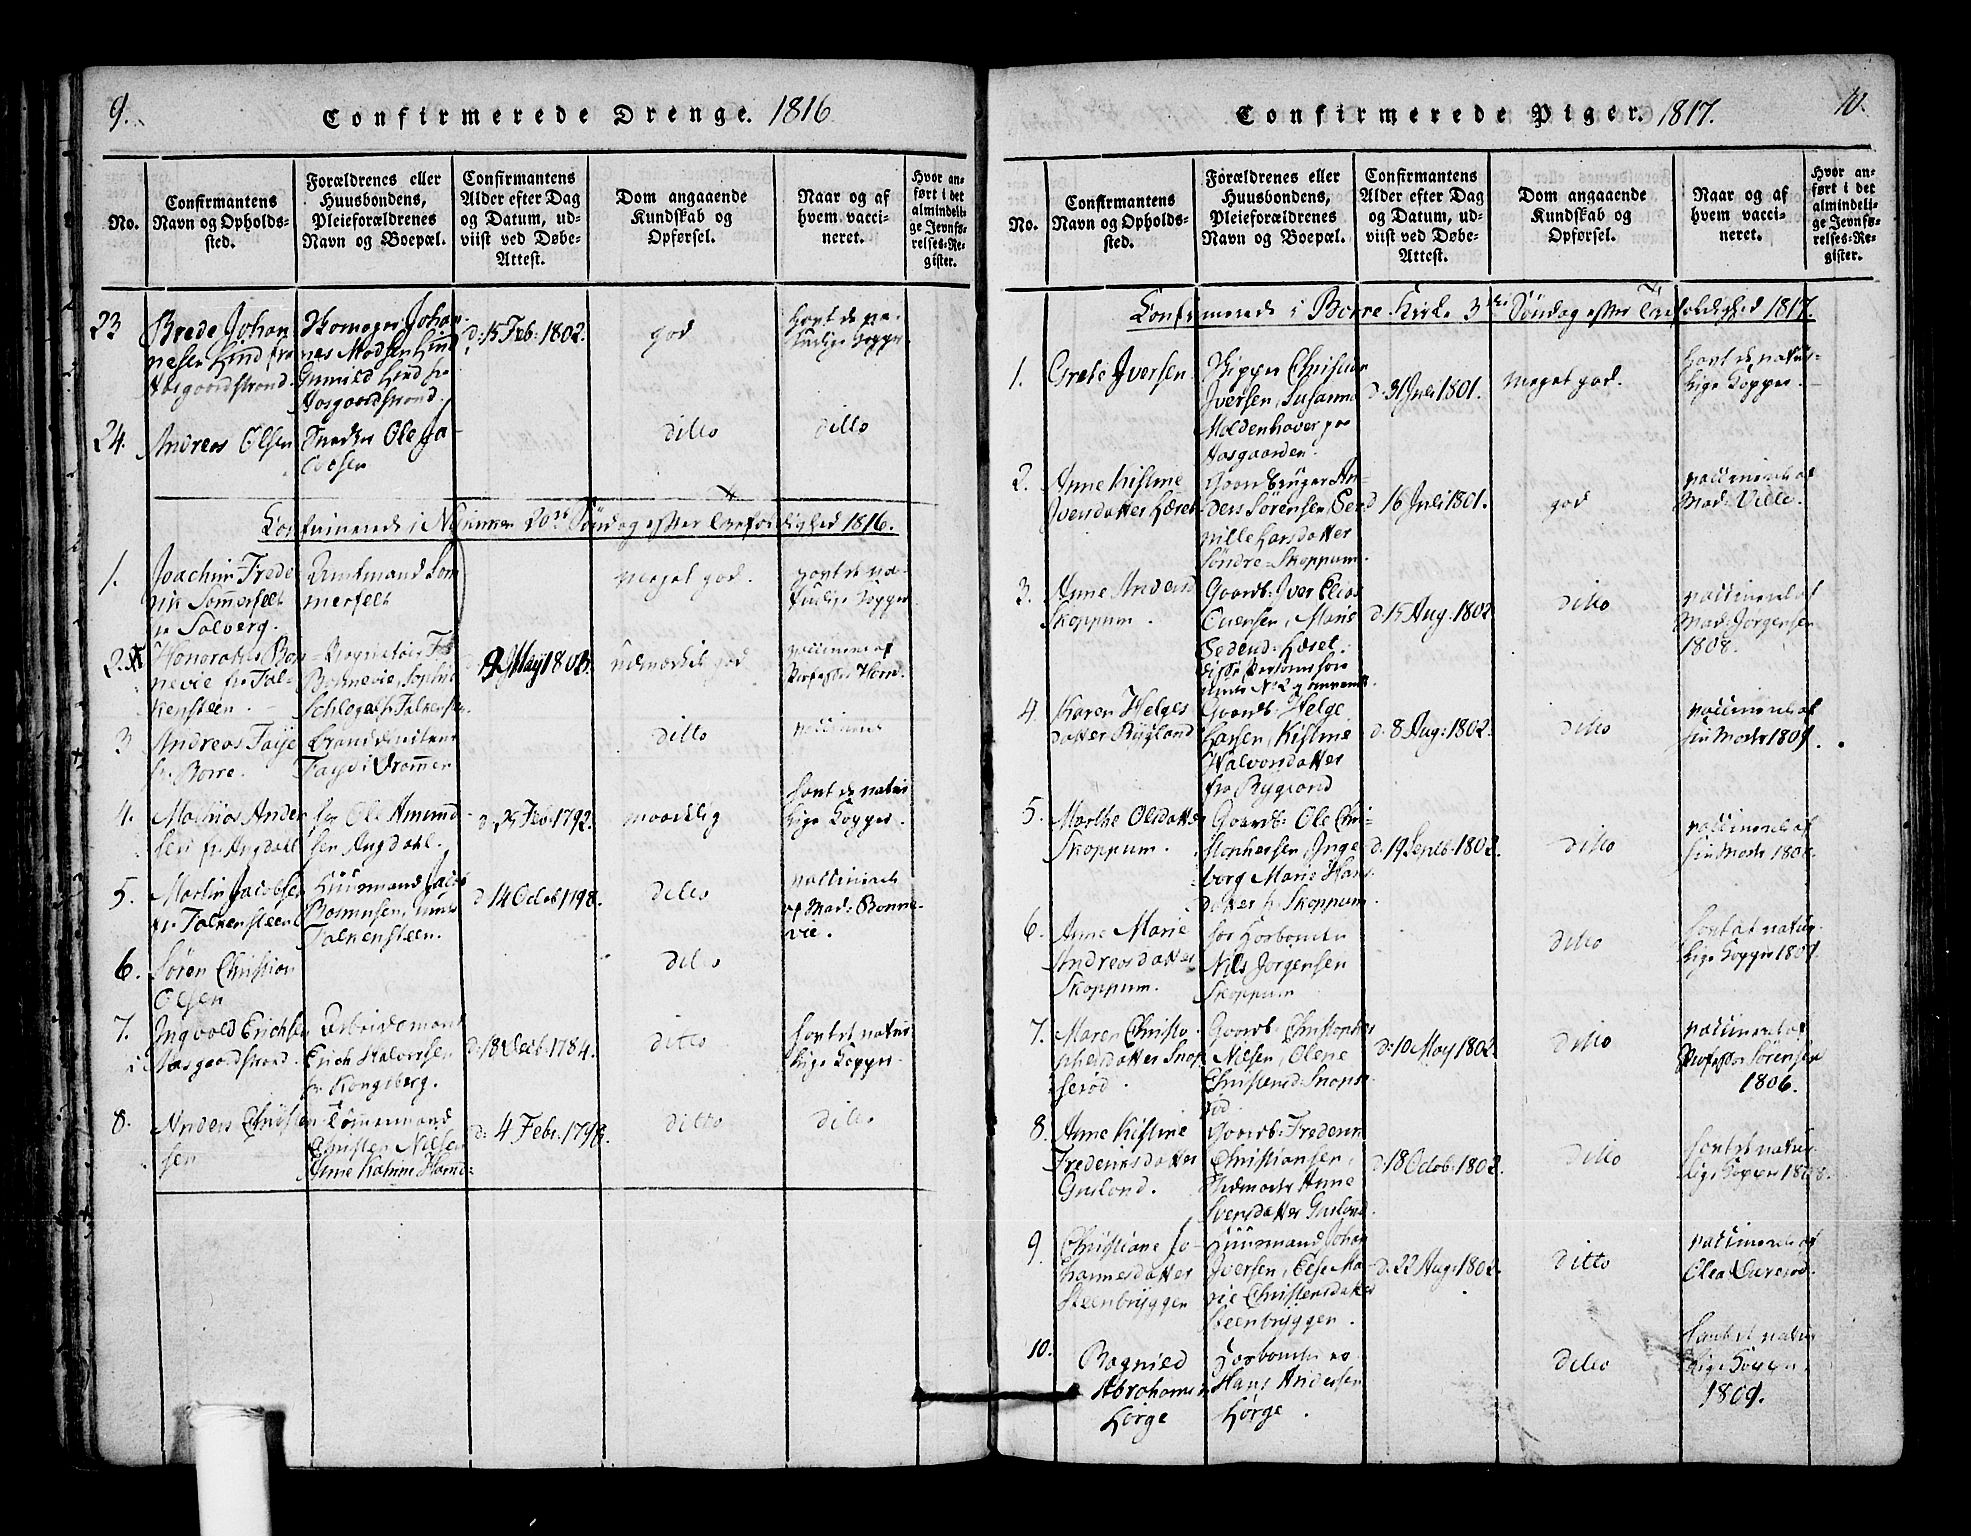 9.
Confirmerede Drenge. 1816
No.
Confirmantens
Navn og Opholds-
sted.
Forældrenes eller
Huusbondens,
Pleieforældrenes
Navn og Boepæl.
Confirmantens
Alder efter Dag
og Datum, ud-
viist ved Døbe-
Attest.
Dom angaaende
Kundskab og
Opførsel.
Naar og af
hvem vacci-
neret.
Hvor an-
ført i det
almindeli-
ge Jevnfø-
relses-Re-
gister.
23
Brede Johan
nesen Lind fra
Aasgaardstrand.
Johan-
nes Madsen Lind
Gunnild Lind fr
Aasgaardstrand.
d: 15 Feb: 1802.
god
havt de na-
turlige Kopper.
24.
Andreas Olsen
Snedker Ole Ja-
cobsen
ditto
ditto
Confirmerede i 20de Søndag efter Trefoldighed 1816.
1.
Joachim Frede
rik Sommerfelt
fr Solberg.
Amtmand Som
merfelt
meget god.
havt de na-
turlige Kopper
2.
Honoratus Bon
nevie fr Fal-
kensteen.
Proprietair
Bonnevie, Sophie
Schlogel fr Falkensten
May 1803.
udmærket god
vaccineret af
Professor Horn.
3
Andreas Faye
fr. Borre.
Faye i Drammen
ditto
vaccineret
4.
Mathias Ander
sen fr. Augdahl
for Ole Amund
sen Augdahl.
d. 25 Feb: 1792.
maadelig
havt de natur
lige Kopper.
5.
Martin Jacobsen
fr. Falkensteen
Huusmand Jacob
Rasmusen, under
Falkensteen.
d. 14 Octob 1798.
ditto
vaccineret
af Mad: Bonne-
vie.
6.
Søren Christian
Olsen
ditto
7.
Ingvold Erichsen
i Aasgaardstrand.
Arbeidsmand
Erich Halvorsen
fr Kongsberg.
d. 18 1784.
ditto
havt de natur
lige Kopper
8.
Anders Christen
sen
Tømmermand
Christen Nilsen
Anne Katrine
d: 4 Febr. 1798.
ditto
ditto
10.
Confirmerede Piger. 1817.
No.
Confirmantens
Navn og Opholds-
sted.
Forældrenes eller
Huusbondens,
Pleieforældrenes
Navn og Boepæl.
Confirmantens
Alder efter Dag
og Datum, ud-
viist ved Døbe-
Attest.
Dom angaaende
Kundskab og
Opførsel.
Naar og af
hvem vacci-
neret.
Hvor an-
ført i det
almindeli-
ge Jevnfø-
relses-Re-
gister.
Confirmerede i Borre Kirke 3die Søndag efter Trefoldighed 1817.
1.
Grete Iversen
Skipper Christian
Iversen, Susanne
Moldenhaver paa
Aasgaarden.
d. 31 Juli 1801.
meget god.
havt de natur-
lige Kopper.
2.
Anne Kistine
Gaardbruger An-
ders Sørensen
nille Larsdatter
Søndre-Skoppum.
d 16 Juli 1801.
god
vaccineret af
Mad: Vidle.
3.
Anne
Skoppum.
Gaardb: Iver Elias
Marie
d. 15 Aug: 1802
ditto
vaccineret af
Mad: Jørgensen
1808.
4
Karen Helges
datter Rygland
Gaardb: Helge
Larsen, Kistine
Halvorsdatter
fra
d. 8 Aug: 1802.
ditto
vaccineret af
sin Moder 1809.
5.
Marthe Olsdatter
Skoppum.
Gaardb: Ole Chri-
stophersen, Inge
borg Marie Hans
datter fr Skoppum.
d. 19 Septb. 1802.
ditto
vaccineret af
sin Moder
6.
Anne Marie
Andreasdatter
Skoppum.
for
Nils Jørgensen
Skoppum
ditto
havt de natur-
lige Kopper 1809.
7.
Maren Christo
phersdatter Snop
serød.
Gaardb. Christopher
Nilsen, Olene
Christensd. Snops
rød.
d. 10 May 1802.
ditto
vaccineret af
Professor Sørensen
1806.
8.
Anne Kistine
Fredericsdatter
Guslond.
Gaardb: Frederic
Christiansen,
Anne
Svensdatter Guslond.
d. 18 Octob: 1802.
ditto
havt de natur-
lige Kopper 1808.
9.
Christiane Jo-
hannesdatter
Steenbryggen
Huusmand Johan
Iversen, Else Ma-
rie Christensdatter
Steenbryggen.
d. 22 Aug: 1802.
ditto
vaccineret af
Olea
10.
Ragnild
Abrahams
Lørge
Hans Andersen
Lørge.
ditto
havt de natur
lige Kopper,
1809.